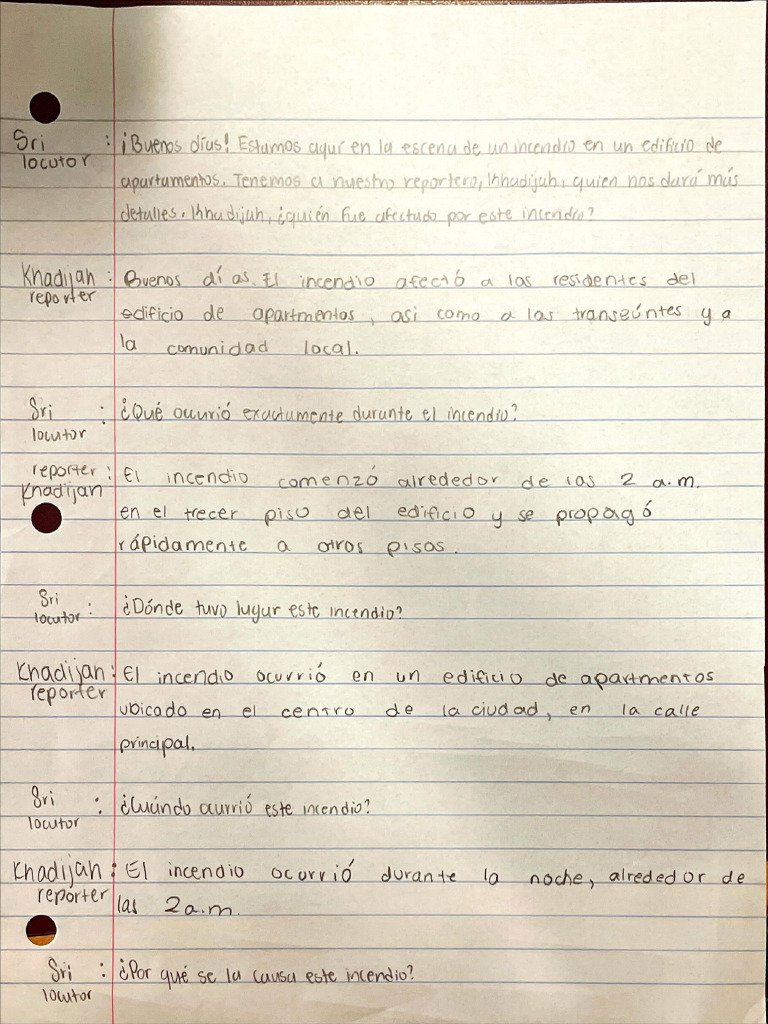 Sri : ¡Buenos días! Estamos aquí en la escena de un incendio en un edificio de
locutor apartamentos. Tenemos a nuestro reportero, Khadijah, quien nos dará más
detalles. Khadijah, ¿quién fue afectado por este incendio?
Khadijah : Buenos días. El incendio afectó a los residentes del
reporter edificio de apartmentos, asi como a los transeúntes y a
la comunidad local.
Sri : ¿Qué ocurrió exactamente durante el incendio?
locutor
reporter : El incendio comenzó alrededor de las 2 a.m.
Khadijah en el trecer piso del edificio y se propagó
rápidamente a otros pisos.
Sri : ¿Dónde tuvo lugar este incendio?
locutor
Khadijah : El incendio ocurrió en un edificio de apartmentos
reporter ubicado en el centro de la ciudad, en la calle
principal.
Sri : ¿Cuándo ocurrió este incendio?
locutor
Khadijah : El incendio ocurrió durante la noche, alrededor de
reporter las 2 a.m.
Sri : ¿Por qué se la causa este incendio?
locutor